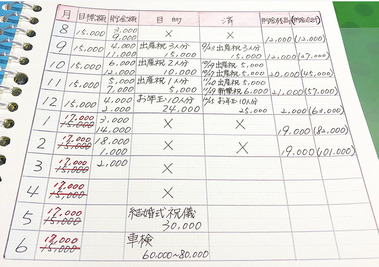 月 目標額 貯金額 目的 済 貯金残高(貯金総額)
8 15,000 3,000 × ×
9,000 12,000 (12,000)
9 15,000 4,000 出産祝3人分 出産祝3人分
11,000 15,000 15,000 12,000 (27,000)
10 15,000 6,000 出産祝2人分 出産祝 5,000
12,000 10,000 出産祝 5,000 20,000 (45,000)
11 15,000 5,000 出産祝1人分 出産祝 5,000
7,000 5,000 6,000 21,000 (57,000)
12 15,000 4,000 お年玉10人分 お年玉10人分
2,000 24,000 25,000 2,000
1 17,000 3,000 × ×
15,000 14,000 19,000
2 17,000 18,000 × ×
15,000 1,000 19,000 (101,000)
3 17,000 2,000 ×
15,000
4 17,000 ×
15,000
5 17,000 結婚式祝儀
15,000 30,000
6 17,000 車検
15,000 60,000~80,000